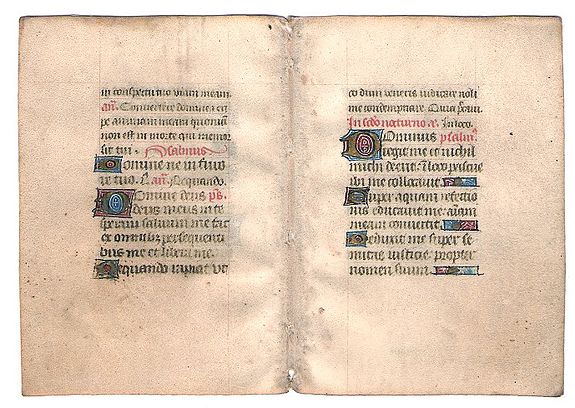 in conspectu tuo viam meam.
an. Convertere domine et eri
pe animam meam quoniam
non est in morte qui memor
sit tui. Psalmus
Domine ne in furo
re tuo. an. Nequando.
Domine deus ps.
deus meus in te
speravi salvum me fac
ex omnibꝫ persequenti
bus me et libera me.
Nequando rapiat ut
co dum veneris iudicare noli
me condempnare. Quia
In nocturno a. In loco.
Dominus psalmꝰ
regit me et nichil
michi deerit: In loco pascue
ibi me collocavit.
Super aquam refectio
nis educavit me: aīam
meam convertit.
Deduxit me super se
mitas iusticie: propter
nomen suum.